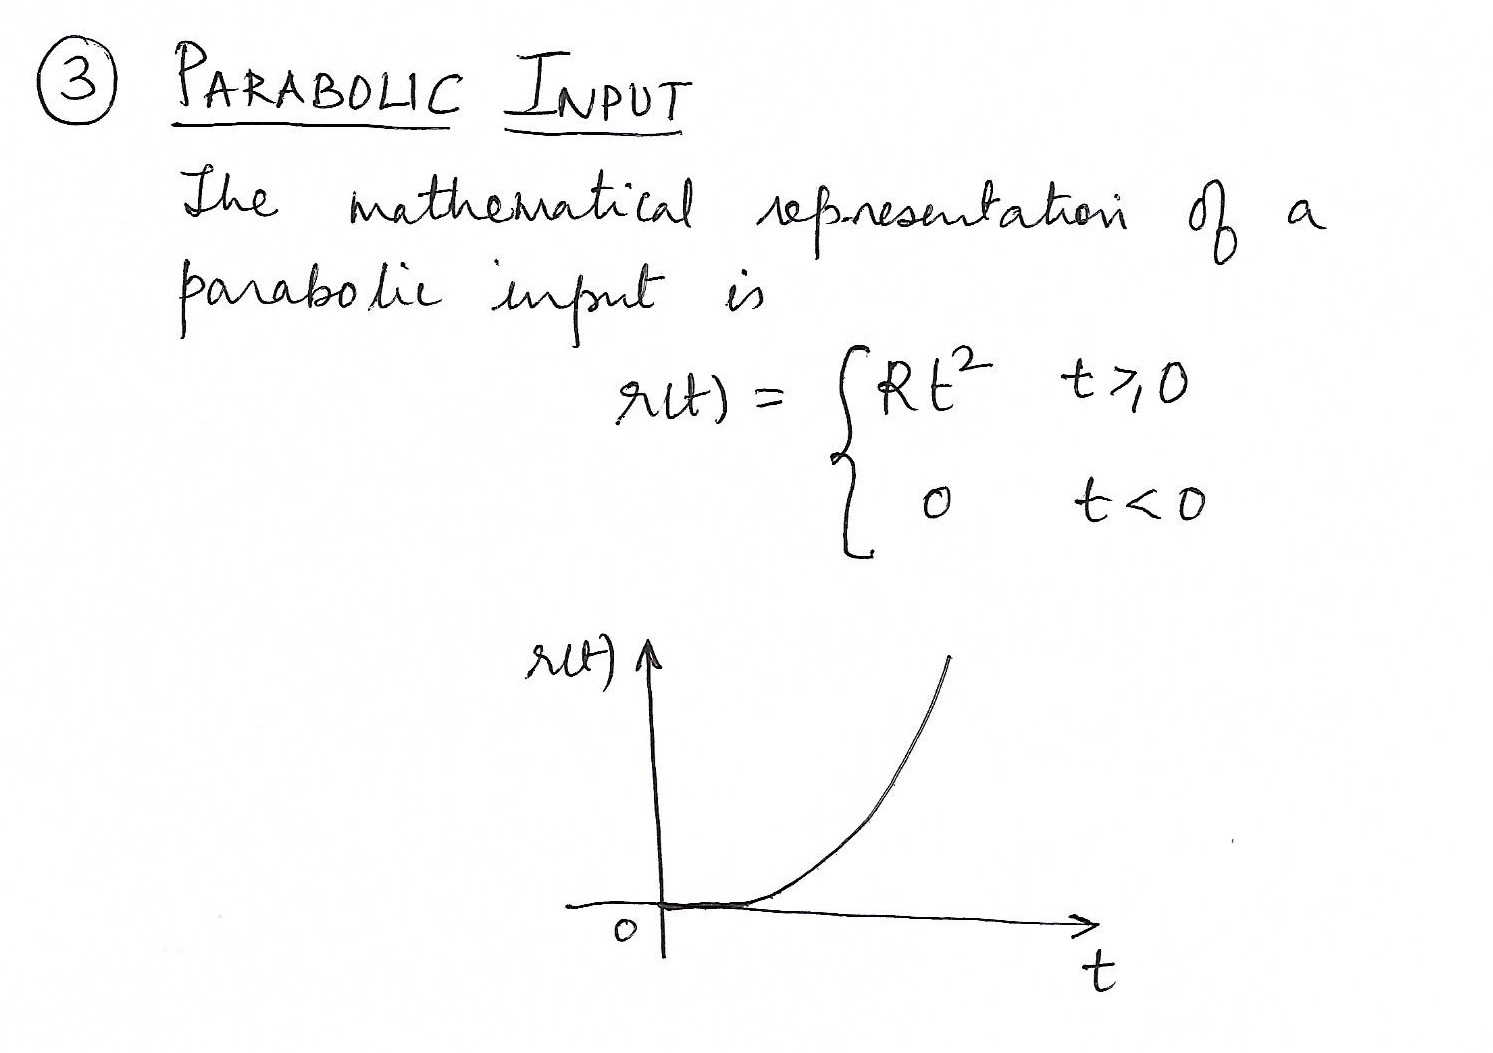 ③ PARABOLIC INPUT
The mathematical representation of a
parabolic input is
r(t) = { Rt² t ≥ 0
0 t < 0
r(t)
0
t